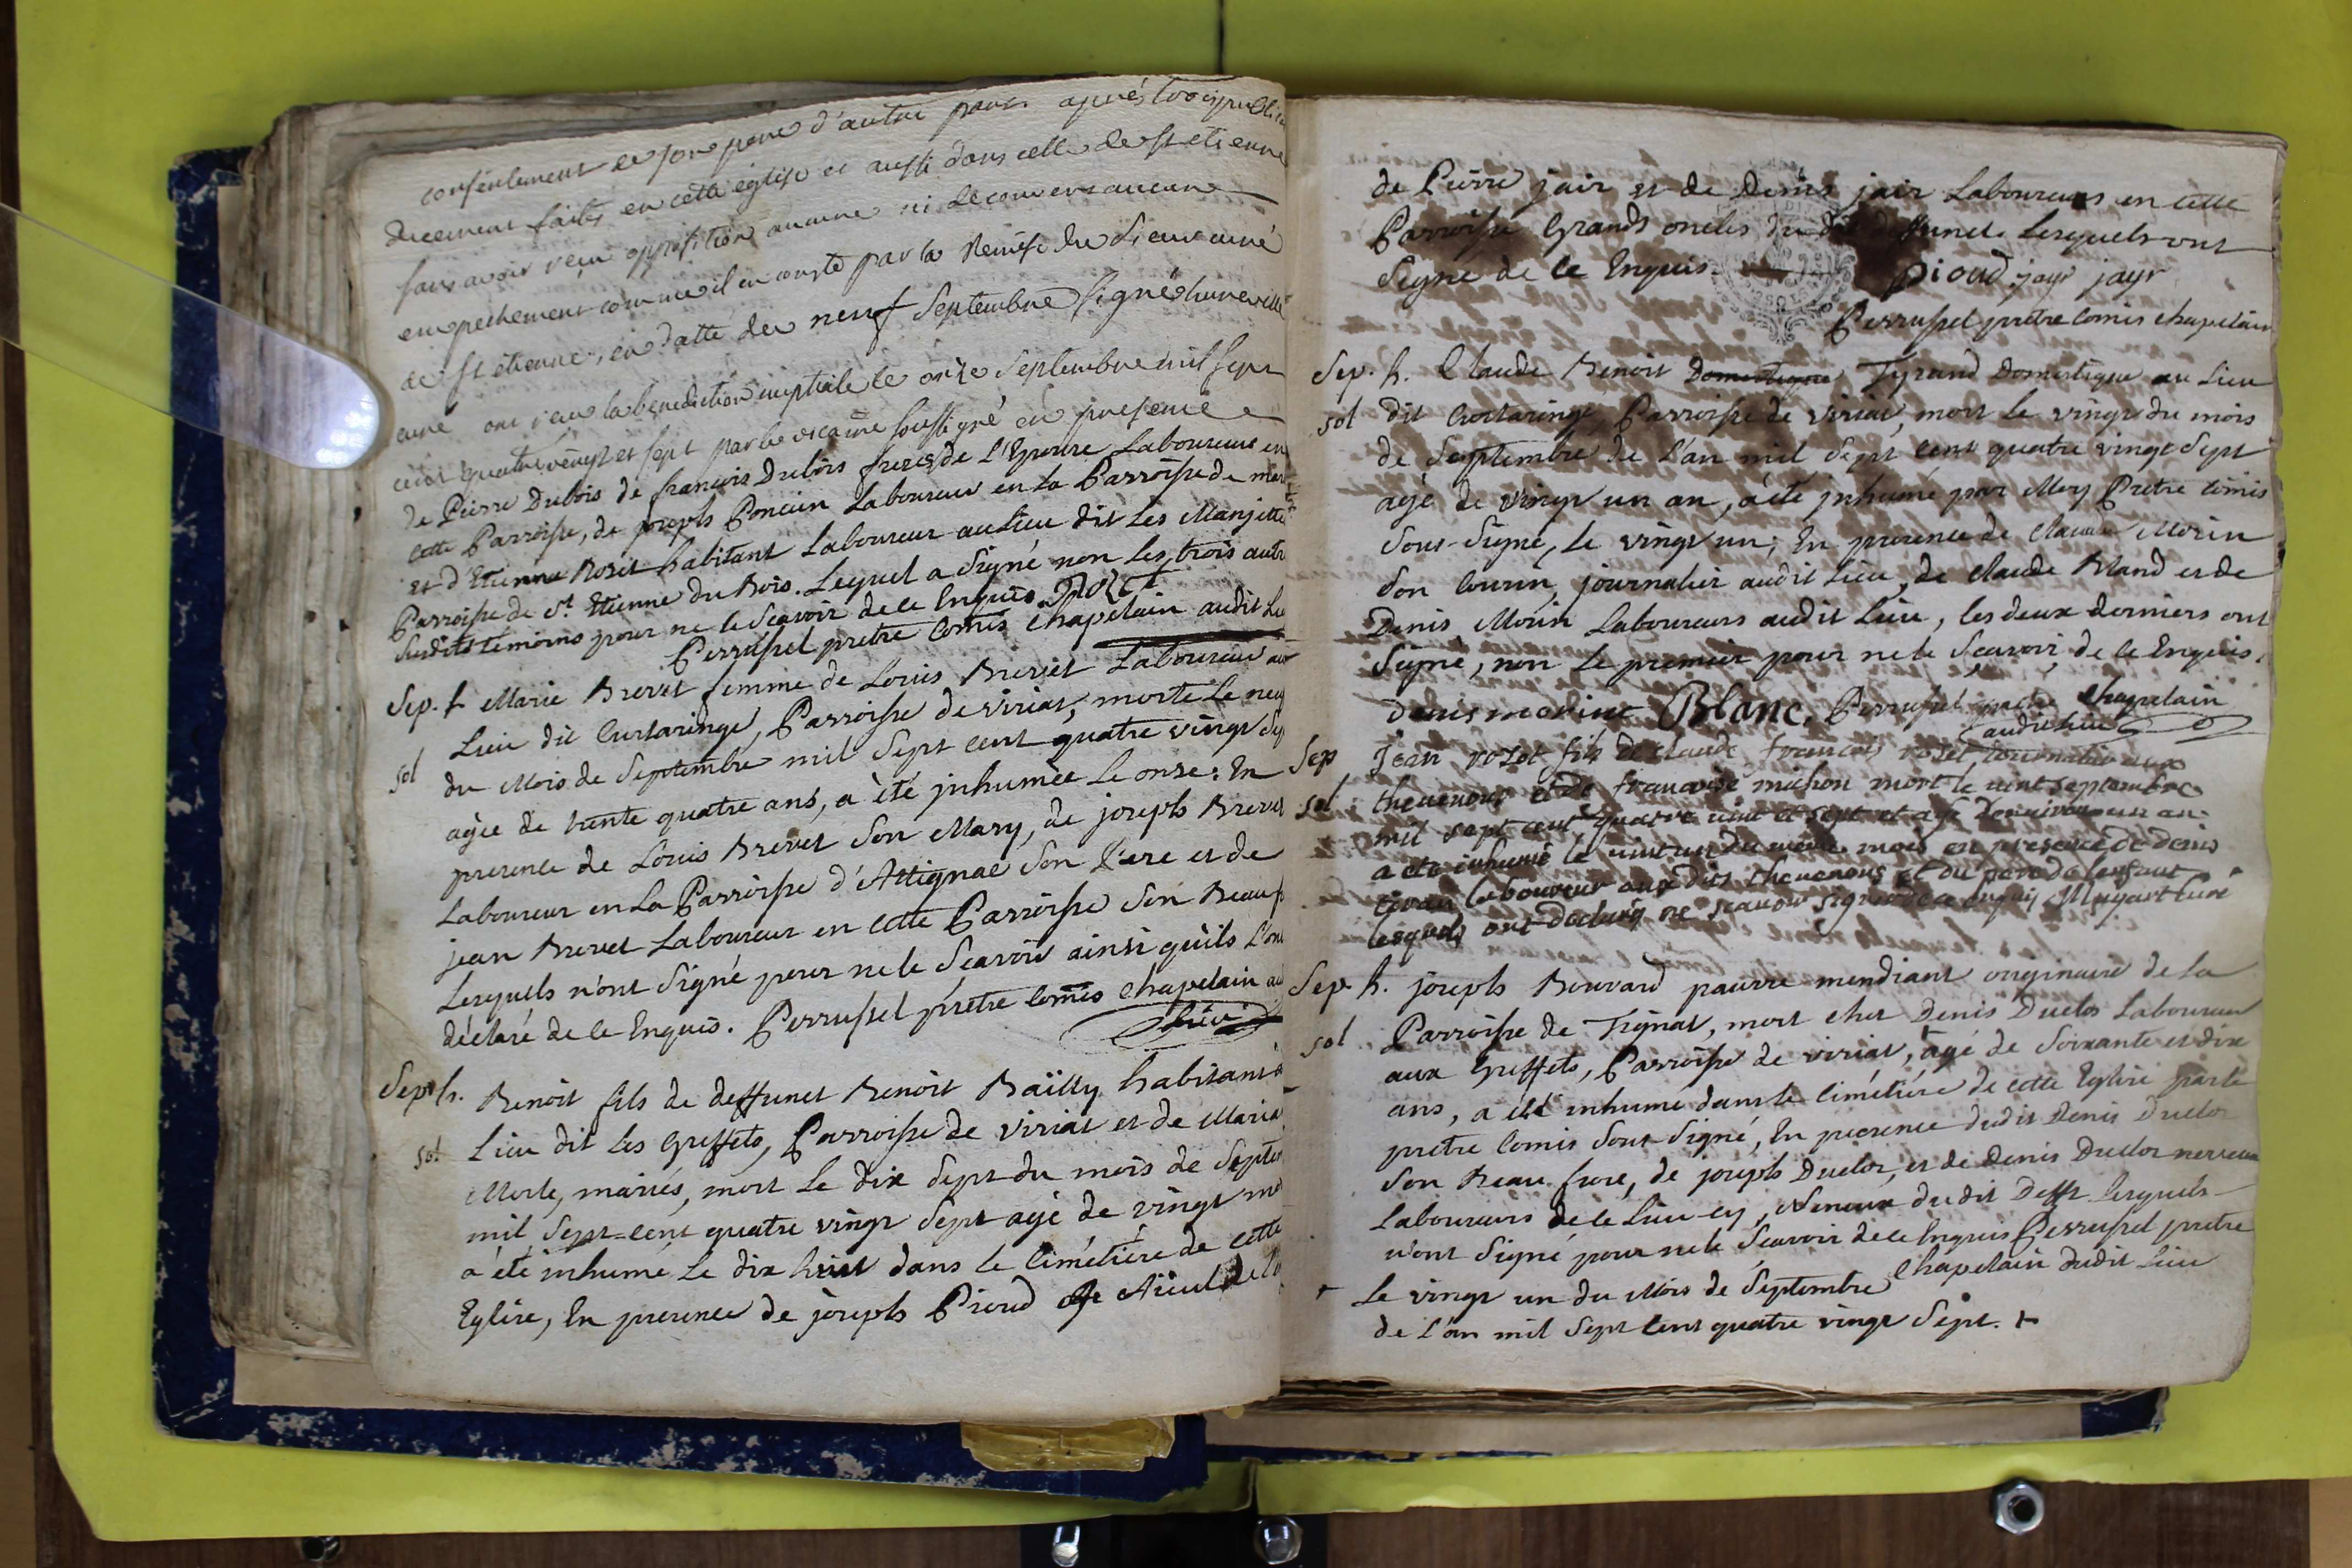 consentement de son pere d'autre part. après trois publica
duement faites en cette église et aussi dans celle de st etienne
sans avoir reçu opposition aucune ni decouvers aucun
empechement comme il en conste par la Remise du Sieur curé
de st etienne, en datte du neuf Septembre signé huneville
curé ont reçu la benediction nuptiale le onze Septembre mil sept
cent quatre vingt et sept par le vicaire soussigné en presence
de Pierre Dubois de francois Dubois freres de L'Epouse Laboureurs en
cette Parroisse, de joseph Poncin Laboureur en la Parroisse de mar
et d'Etienne Rozet habitant Laboureur au Lieu dit Les Manjette
Parroisse de St. Etienne du Bois. Lequel a Signé non les trois autr
susdits temoins pour ne le Scavoir de ce Enquis. Rozet
Perrussel pretre Comis Chapelain audit Lie
Sep. h. Marie Brevet femme de Louis Brevet Laboureur au
Lieu dit Curtaringe, Parroisse de viriat, morte Le neuf
sol du Mois de Septembre mil Sept cent quatre vingt Sep
agée de trente quatre ans, a été inhumée Le onze: En
presence de Louis Brevet Son Mary, de joseph Brevet
Laboureur en La Parroisse d'Attignac Son Pere et de
jean Brevet Laboureur en cette Parroisse Son Beauf
Lesquels n'ont Signé pour ne le Scavoir ainsi qu'ils L'ont
déclaré de ce Enquis. Perrussel prètre Comis chapelain au
Lieu
Sept h. Benoit fils de deffunct Benoit Bailly habitant à
sol Lieu dit les Greffets, Parroisse de Viriat et de Maria
Morte, mariés, mort Le dix Sept du mois de Septem
mil Sept-cent quatre vingt Sept agé de vingt mo
a été inhumé Le dix huit dans le Cimétière de cette
Eglise, En presence de joseph Pioud Ayeul de la
de Pierre jair et de Denis jair Laboureurs en cette
Parroisse Grands oncles du dit deffunct. Lesquels ont
Signé de ce Enquis. Pioud jayr jayr
Perrussel pretre Comis chapelain
Sep. h. Claude Benoit Domestique Tyrand Domestique au Lieu
sol dit Curtaringe, Parroisse de viriat, mort le vingt du mois
de Septembre de L'an mil Sept cent quatre vingt Sept
agé de vingt un an, a été inhumé par Moy Pretre Comis
Sous-Signé, Le vingt un; En presence de Claude Morin
Son Cousin, journalier audit Lieu, de Claude Bland et de
Denis Morin Laboureurs audit Lieu, les deux derniers ont
Signé, non le premier pour ne le Scavoir de ce Enquis.
Denis morin Blanc. Perrussel pretre Chapelain
audit Lieu
Sep Jean rozet fils de claude francois rozet journalier aux
sol thevenons et de francoise michon mort le vint septembre
mil sept cent quatre vint et sept et agé denviron un an
a été inhumé le vint un du meme mois en presence de denis
tiran laboureur aux dits thevenons et du pere de lenfant
lesquels ont declaré ne scavoir signer de ce Enquis Muyart curé
Sep. h. joseph Bouvard pauvre mendiant originaire de la
sol Parroisse de Tignat, mort chez Denis Duclos Laboureur
aux Greffets, Parroisse de viriat, agé de Soixante et dix
ans, a été inhumé dans le Cimétiére de cette Eglise par le
prètre Comis Sous-Signé, En presence dudit Denis Duclos
Son Beau frere, de joseph Duclos, et de Denis Duclos neveux
Laboureurs de ce Lieu-cy, Neveux dudit Defft Lesquels
n'ont Signé pour ne le Scavoir de ce Enquis Perrussel pretre
Chapelain dudit Lieu
+ Le vingt un du Mois de Septembre
de L'an mil Sept Cent quatre vingt Sept. +